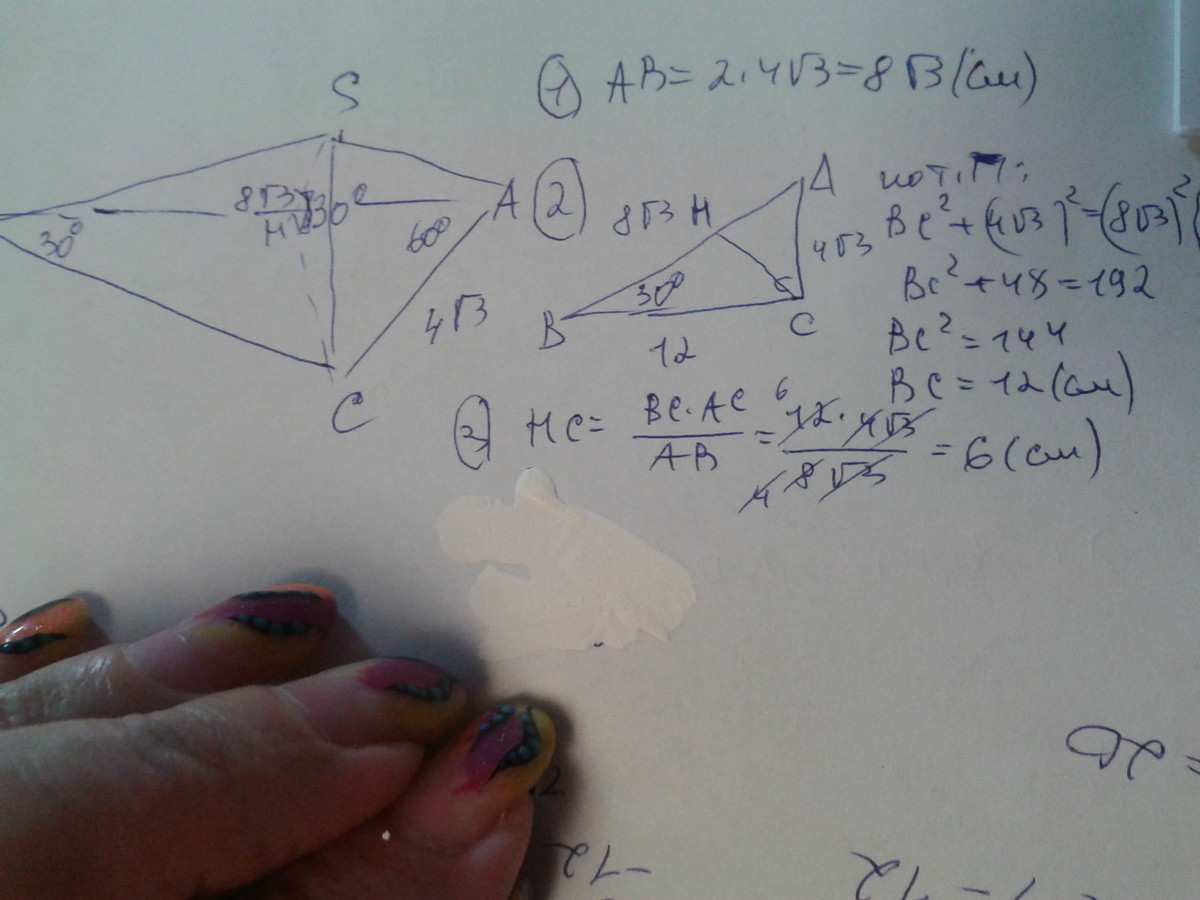 S
8√3
H
30°
60°
A
4√3
C
① AB = 2·4√3 = 8√3 (см)
② 8√3 H
A
30°
4√3
B
12
C
по т. П:
BC² + (4√3)² = (8√3)²
BC² + 48 = 192
BC² = 144
BC = 12 (см)
③ HC = BC·AC / AB = 12·4√3 / 8√3 = 6 (см)
6
4